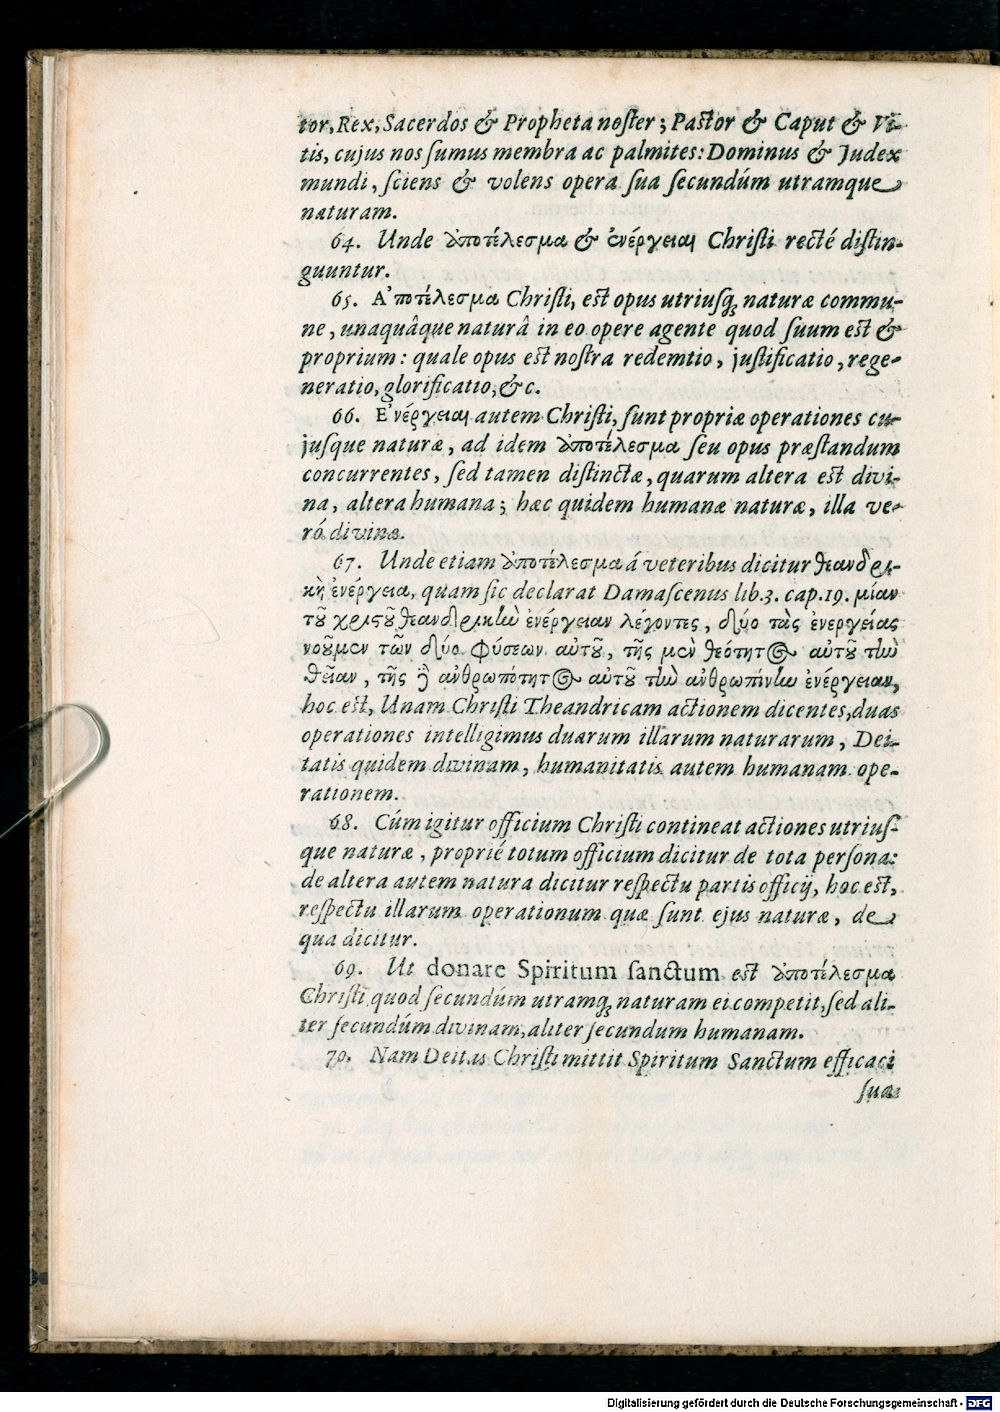 tor, Rex, Sacerdos & Propheta noster; Pastor & Caput & Vi-
tis, cujus nos ſumus membra ac palmites: Dominus & Judex
mundi, ſciens & volens opera ſua ſecundúm utramque
naturam.
64. Unde ἀποτέλεσμα & ἐνέργειαι Chriſti recté diſtin-
guuntur.
65. Α᾿ποτέλεσμα Chriſti, eſt opus utriuſq́ꝫ naturæ commu-
ne, unaquâque naturâ in eo opere agente quod ſuum eſt &
proprium: quale opus eſt noſtra redemtio, juſtificatio, rege-
neratio, glorificatio, &c.
66. Ε᾿νέργειαι autem Chriſti, ſunt propriæ operationes cu-
juſque naturæ, ad idem ἀποτέλεσμα ſeu opus præſtandum
concurrentes, ſed tamen diſtinctæ, quarum altera eſt divi-
na, altera humana; hæc quidem humanæ naturæ, illa ve-
ró divinæ.
67. Unde etiam ἀποτέλεσμα á veteribus dicitur θεανδρι-
κὴ ἐνέργεια, quam ſic declarat Damaſcenus lib. 3. cap. 19. μίαν
τοῦ χριστοῦ θεανδρικὼ ἐνέργειαν λέγοντες, δύο τὰς ἐνεργείας
νοοῦμεν τῶν δύο φύσεων αὐτοῦ, τῆς μὲν θεότητ@ αὐτοῦ τὼ
θείαν, τῆς ἢ ἀνθρωπότητ@ αὐτοῦ τὼ ἀνθρωπίνὼ ἐνέργειαν,
hoc eſt, Unam Chriſti Theandricam actionem dicentes, duas
operationes intelligimus duarum illarum naturarum, Dei-
tatis quidem divinam, humanitatis autem humanam ope-
rationem.
68. Cúm igitur officium Chriſti contineat actiones utriuſ-
que naturæ, proprié totum officium dicitur de tota perſona:
de altera autem natura dicitur reſpectu partis officij, hoc eſt,
reſpectu illarum operationum quæ ſunt ejus naturæ, de
qua dicitur.
69. Ut donare Spiritum ſanctum eſt ἀποτέλεσμα
Chriſti quod ſecundúm utramq́ꝫ naturam ei competit, ſed ali-
ter ſecundúm divinam, aliter ſecundum humanam.
70. Nam Deitas Chriſti mittit Spiritum Sanctum efficaci
ſua
Digitalisierung gefördert durch die Deutsche Forschungsgemeinschaft - DFG